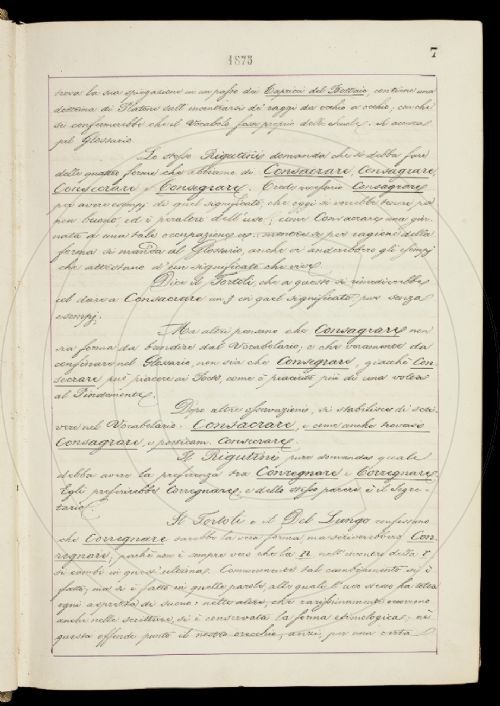 1873
7
trova la sua spiegazione in un passo dei Capricci del Bottaio, contiene una
dottrina di Platone sull'incontrarsi dei raggi da occhio a occhio, con che
si confermerebbe che il Vocabolo fosse proprio delle Scuole. Si accetta
pel Glossario
Lo stesso Rigutini domanda che si debba fare
delle quattro forme che abbiamo di Consacrare, Consagrare,
Consecrare e Consegrare. Crede necessario Consagrare
per avere esempj di quel significato, che oggi si vorrebbe tenere per
non buono, ed è peraltro dell'uso; come Consacrare una gior-
nata a una tale occupazione ec. mentre se per ragione della
forma si manda al Glossario, anche vi anderebbero gli esempj
che attestano d'un significato che vive
Dice il Tortoli, che a questo si rimedierebbe
col dare a Consacrare un § in quel significato pur senza
esempj.
Ma altri pensano che Consagrare non
sia forma da bandire dal Vocabolario; e che veramente da
confinare nel Glossario, non sia che Consegrare, giacchè Con-
secrare può piacere ai Poeti, come è piaciuto più di una volta
al Pindemonte.
Dopo altre osservazioni, si stabilisce di scri-
vere nel Vocabolario: Consacrare, e come anche trovasi
Consagrare, e poeticam. Consecrare.
Il Rigutini pure domanda quale
debba avere la preferenza tra Convegnare e Corregnare
Egli preferirebbe Corregnare, e dello stesso parere è il Segre-
tario
Il Tortoli e il Del Lungo confessano
che Corregnare sarebbe la vera forma, ma scriverebbero Con-
regnare, perchè non è sempre vero che la n nell'incontro della r
si cambi in quest'ultima. Comunemente tal cambiamento si è
fatto, ma si è fatto in quelle parole, alle quali l'uso stesso ha tolta
ogni asprezza di suono: nelle altre, che rarissimamente occorrono
anche nelle scritture, si è conservata la forma etimologica; nè
questa offende punto il nostro orecchio, anzi, per una certa